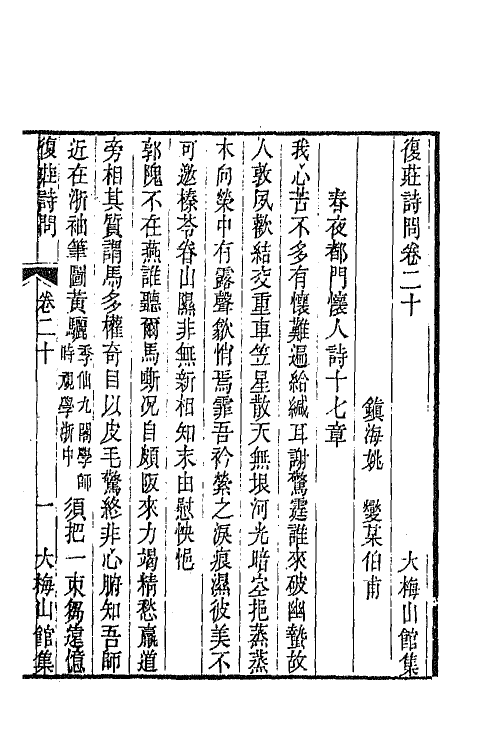 復莊詩問卷二十　大梅山館集
鎭海姚　燮某伯甫
春夜都門懷人詩十七章
我心苦不多有懷難遍給緘耳謝驚霆誰來破幽蟄故
人敦夙歡結交重車笠星散天無垠河光暗空挹蒸蒸
木向榮中有露聲歙悄焉霏吾衿縈之淚痕濕彼美不
可邀榛苓眷山隰非無新相知末由慰怏悒
郭隗不在燕誰聽爾馬嘶况自頗阪來力竭精愁羸道
旁相其質謂馬多權奇目以皮毛驚終非心腑知吾師
近在浙袖筆圖黃驪季仙九閣學師時視學浙中須把一束芻遠億
復莊詩問　卷二十　一　大梅山館集